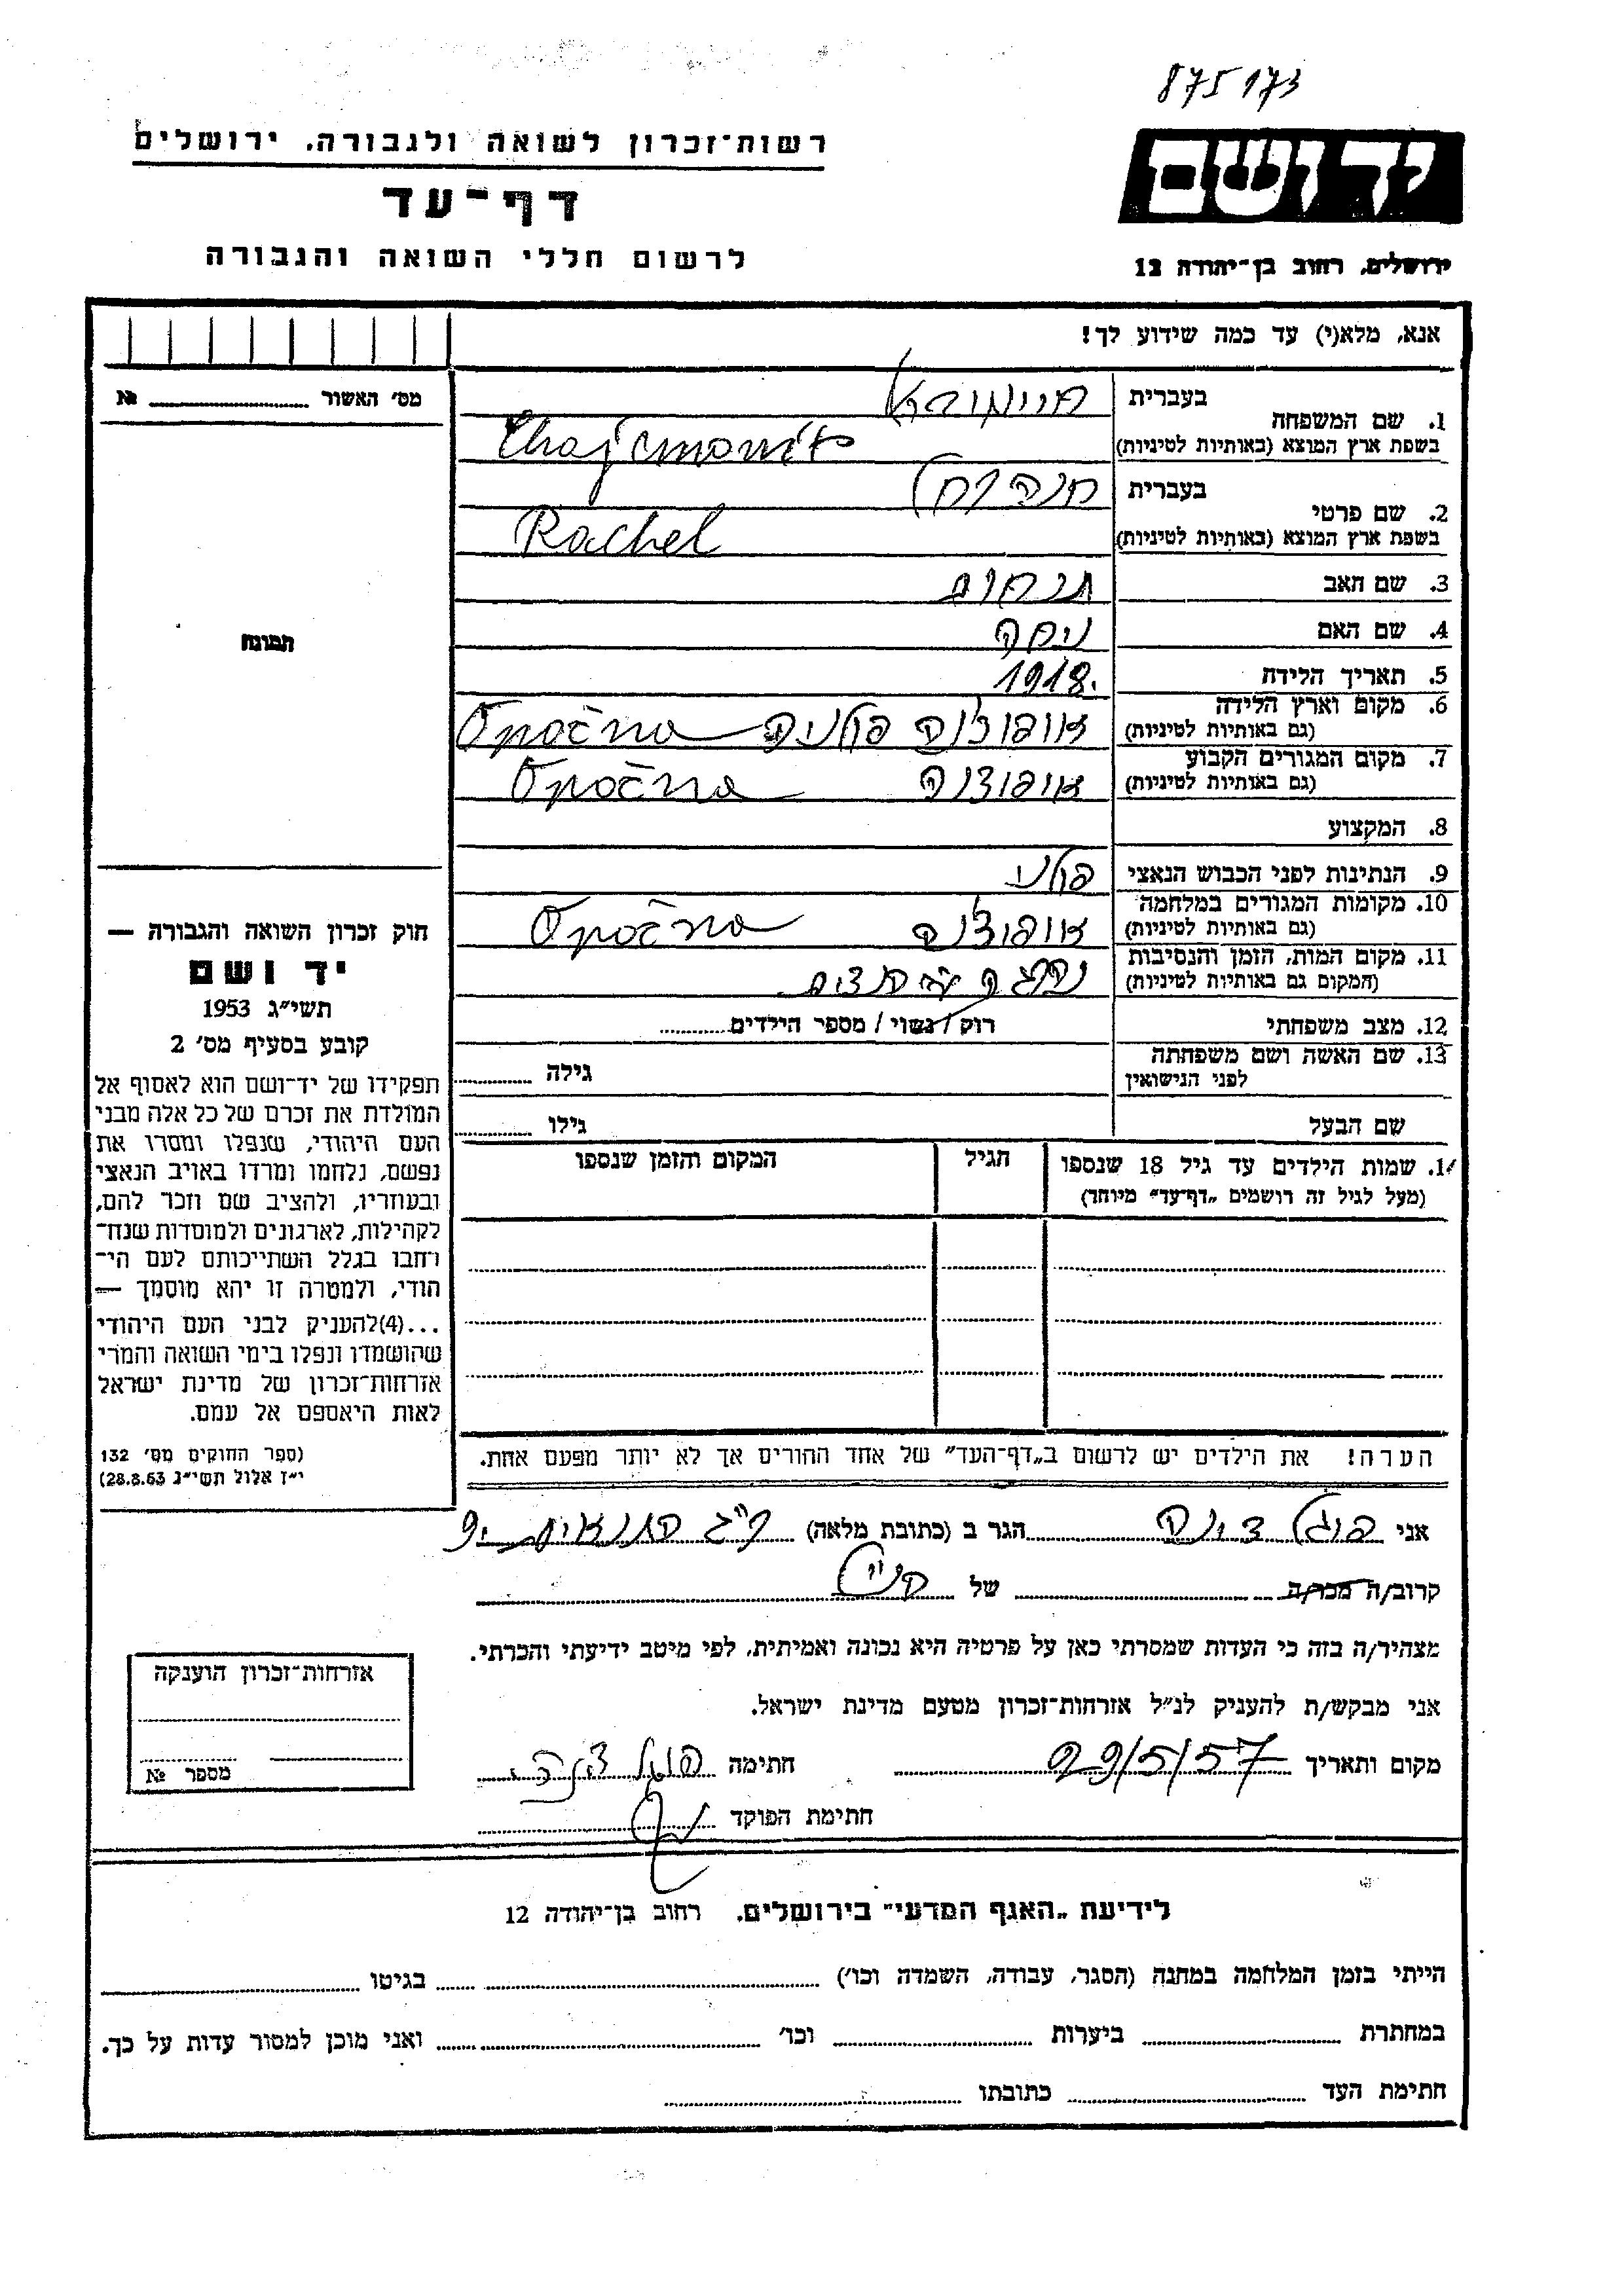 875173
רשות־זכרון לשואה ולגבורה, ירושלים
יד ושם
דף־עד
לרשום חללי השואה והגבורה
ירושלים, רחוב בן־יהודה 12
אנא, מלא(י) עד כמה שידוע לך!
מס׳ האשור № 
1. שם המשפחה
בעברית
בשפת ארץ המוצא (באותיות לטיניות)
2. שם פרטי
בעברית
בשפת ארץ המוצא (באותיות לטיניות) Rachel
3. שם האב תנחום
4. שם האם
5. תאריך הלידה 1918.
6. מקום וארץ הלידה
(גם באותיות לטיניות) אופוצ'נה פולניה Opočna
7. מקום המגורים הקבוע
(גם באותיות לטיניות) אופוצ'נה Opočna
8. המקצוע
9. הנתינות לפני הכבוש הנאצי פולני
10. מקומות המגורים במלחמה
(גם באותיות לטיניות) אופוצ'נה Opočna
11. מקום המות, הזמן והנסיבות
(המקום גם באותיות לטיניות)
12. מצב משפחתי רוק / נשוי / מספר הילדים
13. שם האשה ושם משפחתה
לפני הנישואין גילה
שם הבעל גילו
תמונה
חוק זכרון השואה והגבורה —
יד ושם
תשי״ג 1953
קובע בסעיף מס׳ 2
תפקידו של יד־ושם הוא לאסוף אל
המולדת את זכרם של כל אלה מבני
העם היהודי, שנפלו ומסרו את
נפשם, נלחמו ומרדו באויב הנאצי
ובעוזריו, ולהציב שם וזכר להם,
לקהילות, לארגונים ולמוסדות שנח־
רחבו בגלל השתייכותם לעם הי־
הודי, ולמטרה זו יהא מוסמך —
...(4)להעניק לבני העם היהודי
שהושמדו ונפלו בימי השואה והמרי
אזרחות־זכרון של מדינת ישראל
לאות היאספם אל עמם.
(ספר החוקים מס׳ 132
י״ז אלול תשי״ג 28.8.53)
14. שמות הילדים עד גיל 18 שנספו
(מעל לגיל זה רושמים „דף־עד״ מיוחד)
הגיל
המקום והזמן שנספו
הערה! את הילדים יש לרשום ב„דף־העד״ של אחד ההורים אך לא יותר מפעם אחת.
אני הגר ב (כתובת מלאה)
קרוב/ה מכר/ה של
מצהיר/ה בזה כי העדות שמסרתי כאן על פרטיה היא נכונה ואמיתית, לפי מיטב ידיעתי והכרתי.
אני מבקש/ת להעניק לנ״ל אזרחות־זכרון מטעם מדינת ישראל.
מקום ותאריך 29/5/57 חתימה
חתימת הפוקד
אזרחות־זכרון הוענקה
מספר №
לידיעת „האגף המדעי״ בירושלים, רחוב בן־יהודה 12
הייתי בזמן המלחמה במחנה (הסגר, עבודה, השמדה וכו׳) בגיטו
במחתרת ביערות וכו׳ ואני מוכן למסור עדות על כך.
חתימת העד כתובתו